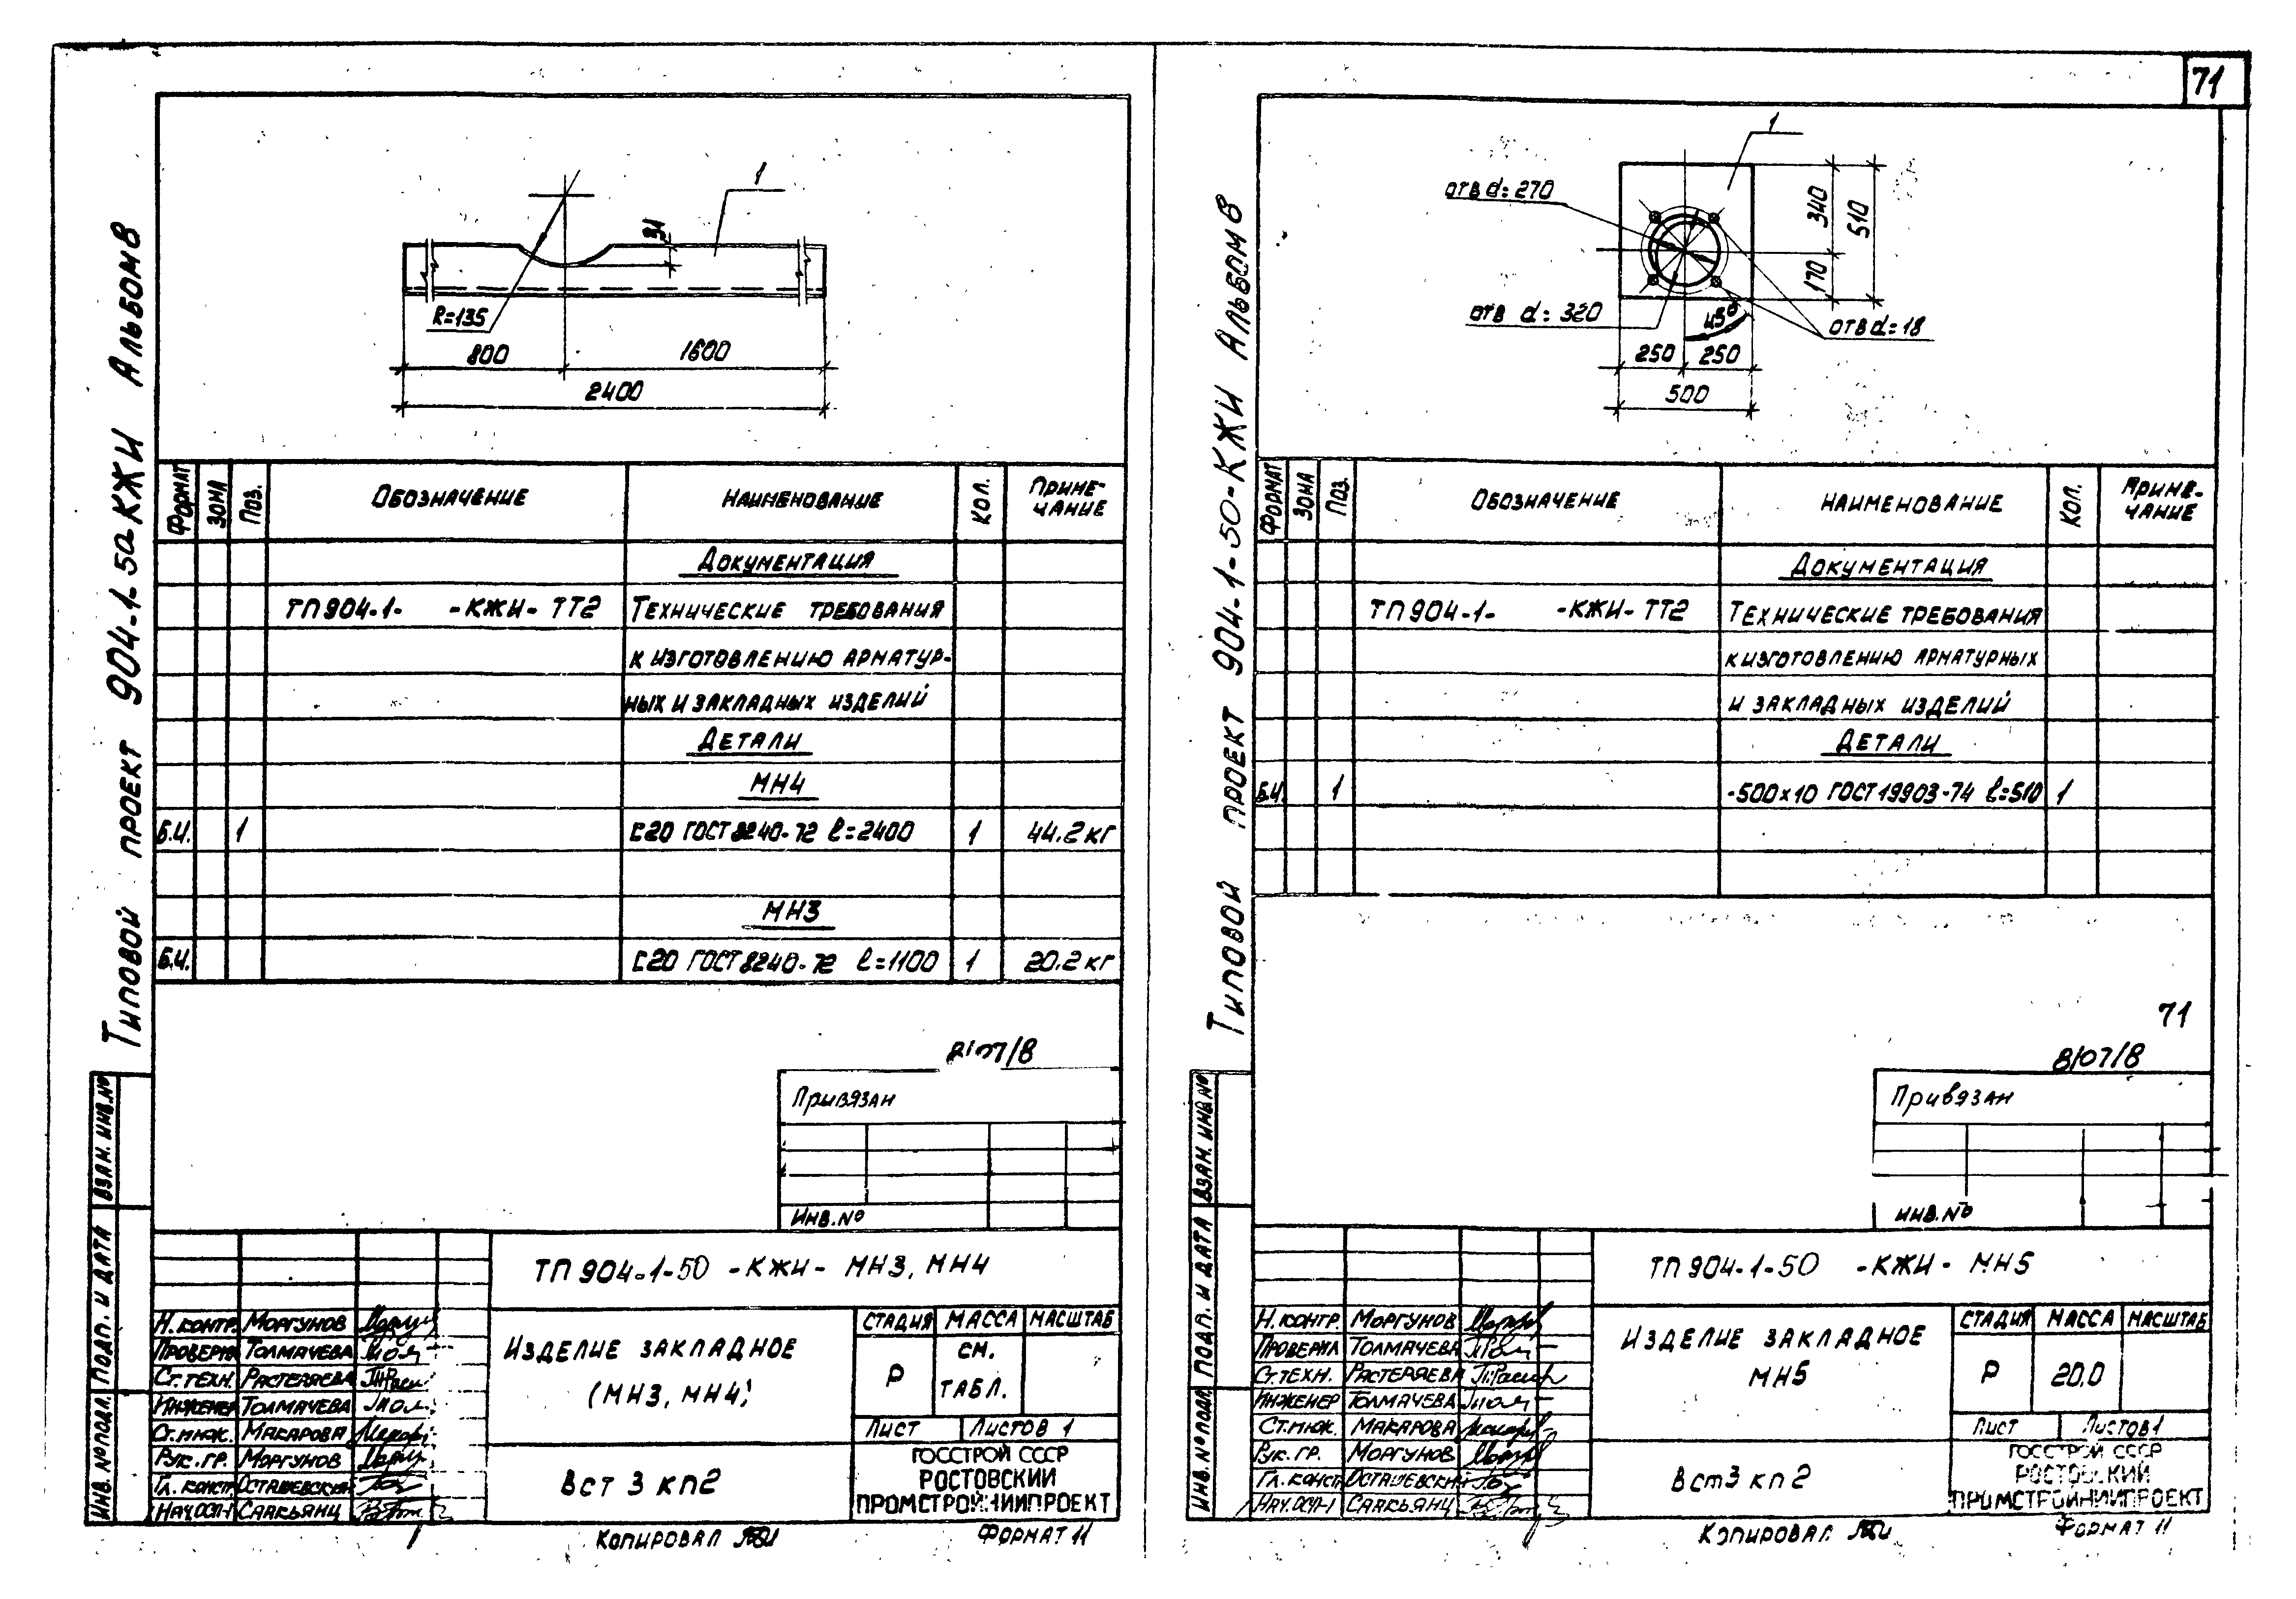 71
Типовой проект 904-1-50 КЖИ Альбом 8
1
31
R=135
800
1600
2400
Формат
Зона
Поз.
Обозначение
Наименование
Кол.
Приме-
чание
Документация
ТП 904-1- -КЖИ- ТТ2 Технические требования
к изготовлению арматур-
ных и закладных изделий
Детали
МН4
Б.Ч. 1 [20 ГОСТ 8240-72 ℓ=2400 1 44.2 кг
МН3
Б.Ч. [20 ГОСТ 8240-72 ℓ=1100 1 20.2 кг
8107/8
Привязан
Инв.№
Взам. инв.№
Подп. и дата
Инв. № подл.
ТП 904-1-50 -КЖИ- МН3, МН4
Н. контр. Моргунов
Проверил Толмачева
Ст. техн. Растеряева
Инженер Толмачева
Ст. инж. Макарова
Рук. гр. Моргунов
Гл. констр. Осташевский
Нач. ОСП-1 Саакьянц
Изделие закладное
(МН3, МН4)
Стадия Масса Масштаб
Р
см.
табл.
Лист Листов 1
Вст 3 кп2
ГОССТРОЙ СССР
РОСТОВСКИЙ
ПРОМСТРОЙНИИПРОЕКТ
Копировал
Формат 11
Типовой проект 904-1-50-КЖИ Альбом 8
1
отв d=270
отв d=320
отв d=18
45°
340
510
170
250
250
500
Формат
Зона
Поз.
Обозначение
Наименование
Кол.
Приме-
чание
Документация
ТП 904-1- -КЖИ- ТТ2 Технические требования
к изготовлению арматурных
и закладных изделий
Детали
Б.Ч. 1 -500×10 ГОСТ 19903-74 ℓ=510 1
71
8107/8
Привязан
Инв.№
Взам. инв.№
Подп. и дата
Инв. № подл.
ТП 904-1-50 -КЖИ- МН5
Н. контр. Моргунов
Проверил Толмачева
Ст. техн. Растеряева
Инженер Толмачева
Ст. инж. Макарова
Рук. гр. Моргунов
Гл. констр. Осташевский
Нач. ОСП-1 Саакьянц
Изделие закладное
МН5
Стадия Масса Масштаб
Р 20.0
Лист Листов 1
Вст 3 кп 2
ГОССТРОЙ СССР
РОСТОВСКИЙ
ПРОМСТРОЙНИИПРОЕКТ
Копировал
Формат 11